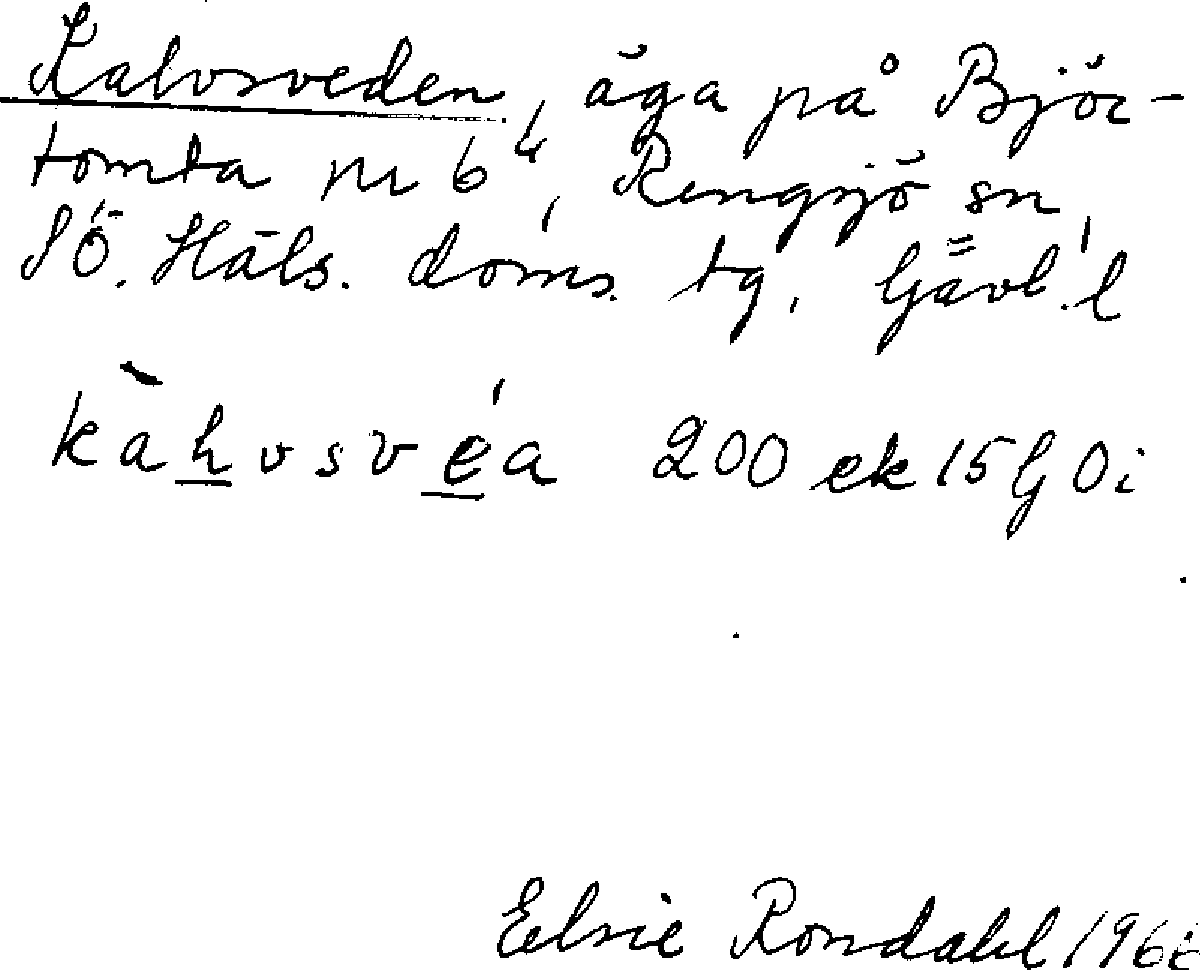 Kalvsveden, äga på Björ-
tomta nr 6⁴, Rengsjö sn,
SÖ. Häls. doms. tg, Gävl. l
kàhvsvéa 200 ek 15G0i
Elsie Rondahl